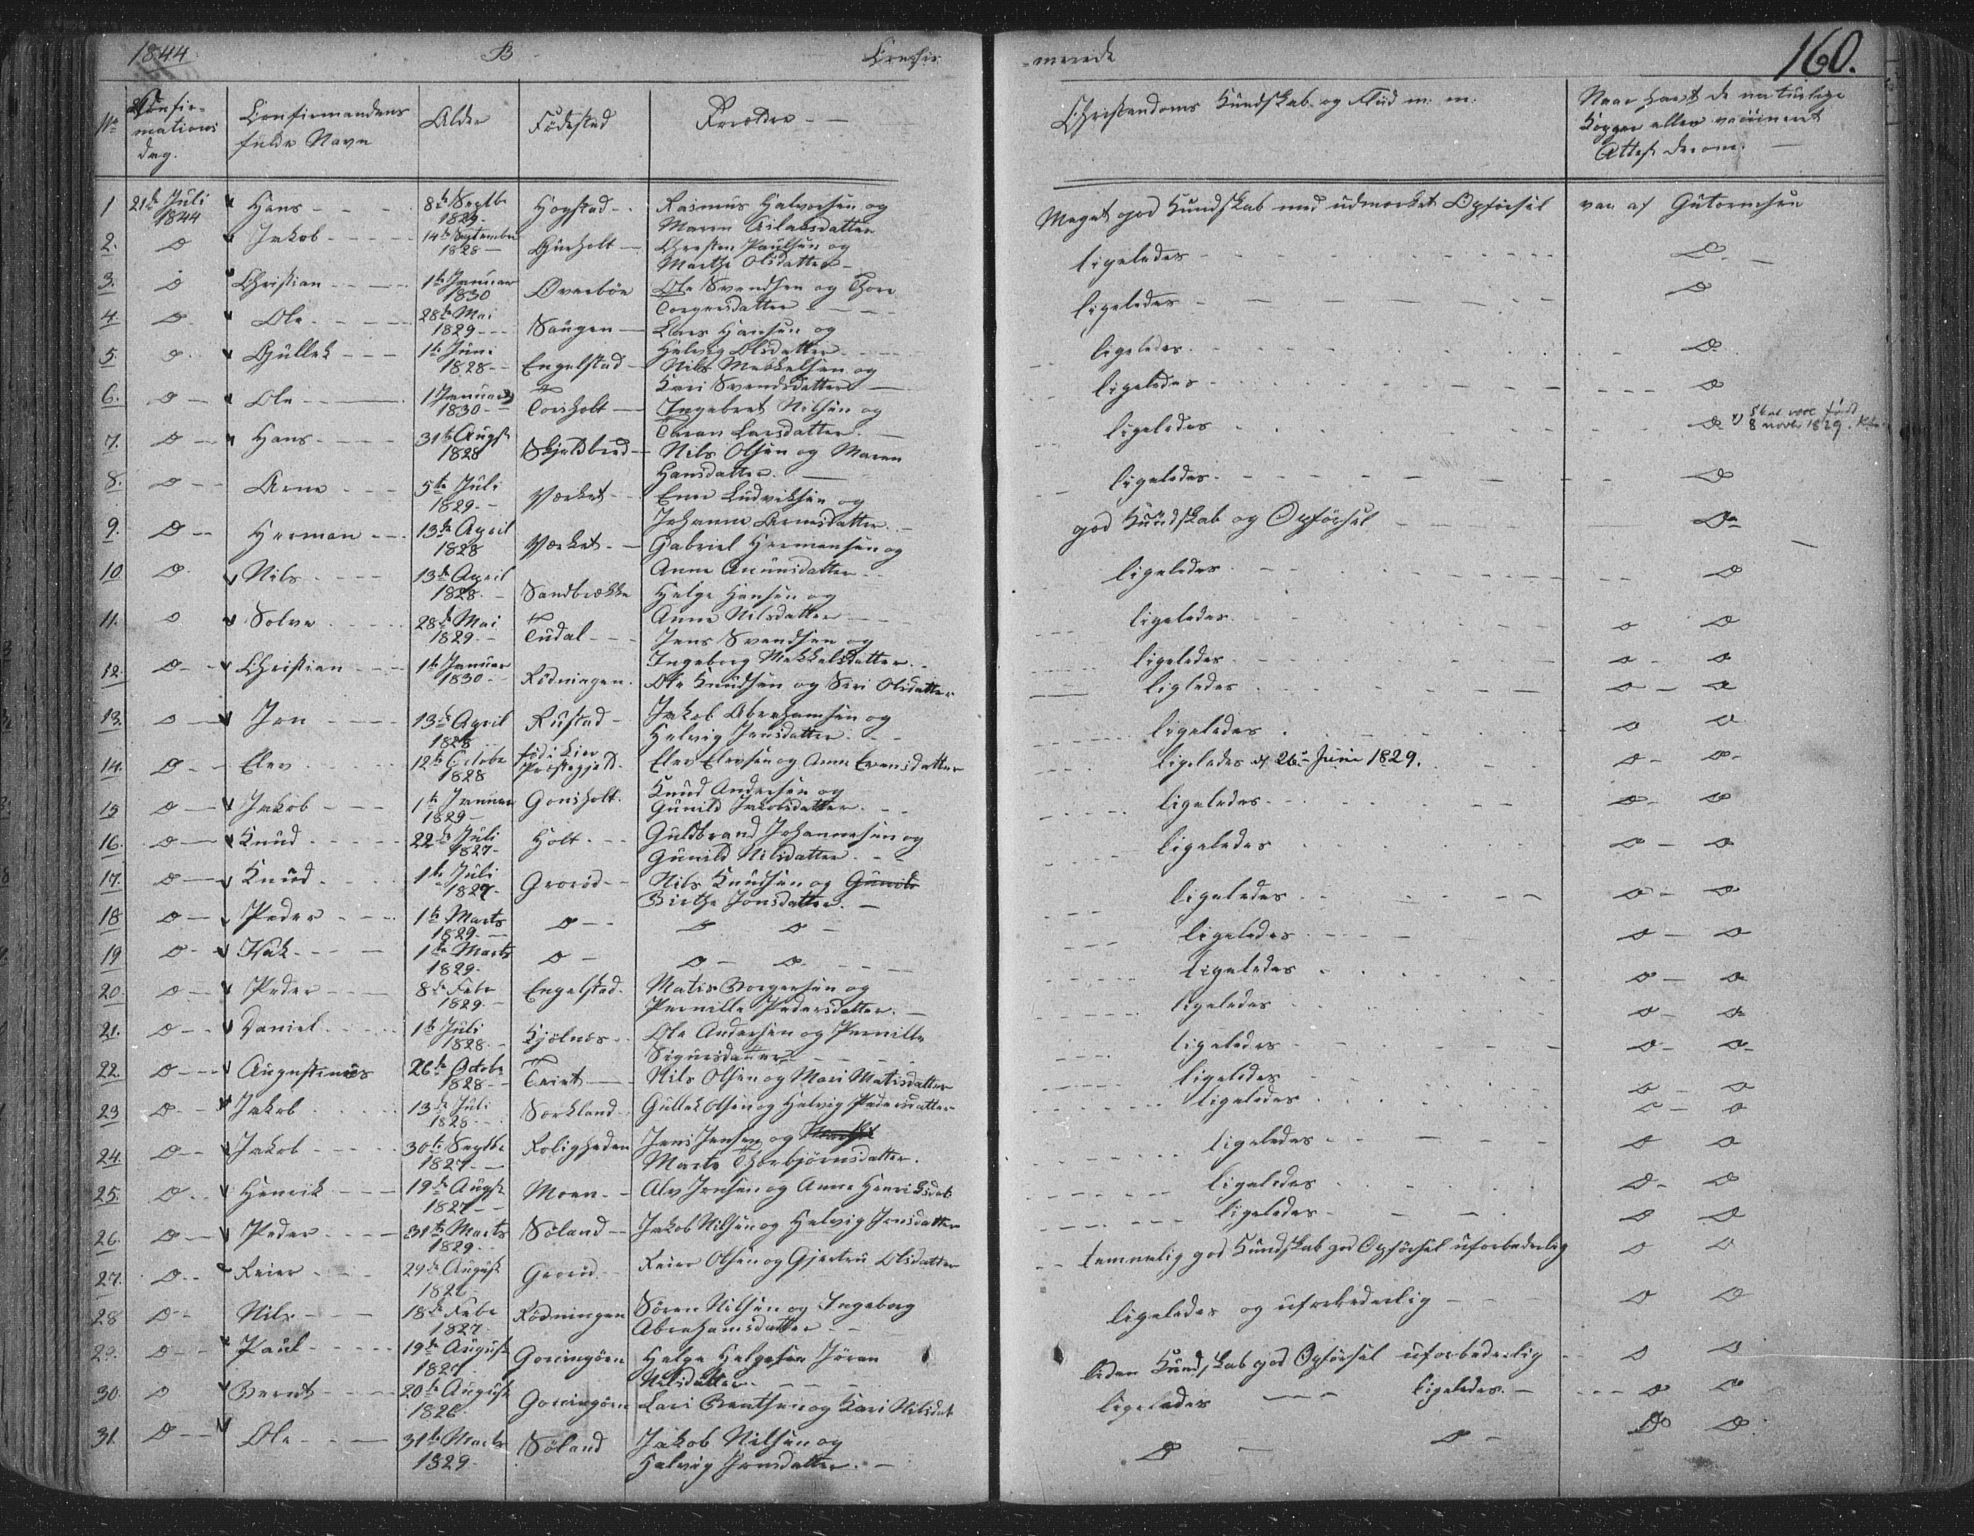 1844. B Confir- -merede 160.
No Confir- mations dag. Confirmandens fulde Navn Alder Fødested Forældre Christendoms Kundskab og Flid m. m. Naar havt de naturlige Kopper eller vaccineret Attest derom.
1 21de Juli 1844 Hans 8de Septbr 1829 Hogstad Rasmus Halvorsen og Maren Aslaksdatter Meget god Kundskab med udmærket Opførsel vac af Gutormsen
2. Do Jakob 14de September 1828 Christen Paulsen og Marthe Olsdatter ligeledes Do
3. Do Christian 1te Januar 1830 Overbøe Ole Svendsen og Thore ligeledes Do
4. Do Ole 28de Mai 1829 Haugen Lars Hansen og Helvig Olsdatter ligeledes Do
5. Do Gullek 1te Juni 1828 Engelstad Nils Mekkelsen og Kari Svendsdatter ligeledes Do
6. Do Ole 1 Januar x) 1830 Torsholt Ingebret Nilsen og Taran Larsdatter ligeledes Do x) Skal være født 8 novbr 1829.
7. Do Hans 31te Augst 1828 Skjeldbred Nils Olsen og Maren Hansdatter ligeledes Do
8. Do Arne 5te Juli 1829 Værket Enne Ludviksen og Johanne Arnesdatter god Kundskab og Opførsel Do
9. Do Herman 13de April 1828 Værket Gabriel Hermansen og Anne ligeledes Do
10 Do Nils 13de April 1828 Sandbrække Helge Hansen og Anne Nilsdatter ligeledes Do Do
11. Do Solve 28de Mai 1829 Tudal Jens Svendsen og Ingeborg Mekkelsdatter ligeledes Do Do
12. Do Christian 1te Januar 1830 Rødningen Ole Knudsen og Siri Olsdatter ligledes Do Do
13. Do Jon 13de April 1828 Rustad Jakob Abrahamsen og Helvig Jensdatter ligeledes Do Do
14. Do Elev 12te Octobr 1828 fød i Lier Præstegjeld Elev Elevsen og Anne Evensdatter ligeledes 26 Juni 1829. Do Do
15 Do Jakob 1te Januar 1829 Gonsholt Knud Andersen og Gunild Jacobsdatter ligeledes Do Do
16. Do Knud 22de Juli 1827 Holt Guldbrand Johannesen og Gunild Nilsdatter ligeledes Do Do
17. Do Knud 1te Juli 1827 Grorød Nils Knudsen og Gunild Birthe Jonsdatter ligeledes Do Do
18. Do Peder 1te Marts 1829 Do Do Do ligeledes Do Do
19 Do Isak 1te Marts 1829 Do Do Do ligeledes Do Do
20. Do Peder 8de Febr 1829 Engelstad Matis Borgersen og Pernille Pedersdatter ligeledes Do Do
21. Do Daniel 1te Juli 1828 Kjølnes Ole Andersen og Pernille Sigursdatter ligeledes Do Do
22. Do Augustinus 26de Octobr 1828 Tveit Nils Olsen og Mari Matisdatter ligeledes Do Do
23 Do Jakob 13de Juli 1828 Sorkland Gullek Olsen og Helvig Pedersdatter ligeledes Do Do
24. Do Jakob 30te Septbr 1827 Roligheden Jens Jensen og Marte Thorbjørnsdatter ligeledes Do Do
25. Do Henrik 19de Augst 1827 Moen Alv Jensen og Anne Henriksdat ligeledes Do Do
26. Do Peder 31te Marts 1829 Søland Jakob Nilsen og Helvig Jensdatter ligeledes Do Do
27. Do Reier 29de August Grorød Reier Olsen og Gjertru Olsdatter temmelig god Kundskab god Opførsel uforbederlig Do Do
28 Do Nils 18de Febr 1827 Rødningen Søren Nilsen og Ingeborg Abrahamsdatter ligeledes og uforbederlig Do Do
29. Do Paul 19de August 1827 Helge Helgesen Jøran Nilsdatter liden Kundskab god Opførsel uforbederlig Do Do
30. Do Bernt 20de August 1826 Lars Berntsen og Kari Nilsdat ligeledes ligeledes Do Do
31. Do Ole 31te Marts 1829 Søland Jakob Nilsen og Helvig Jensdatter Do Do Do Do